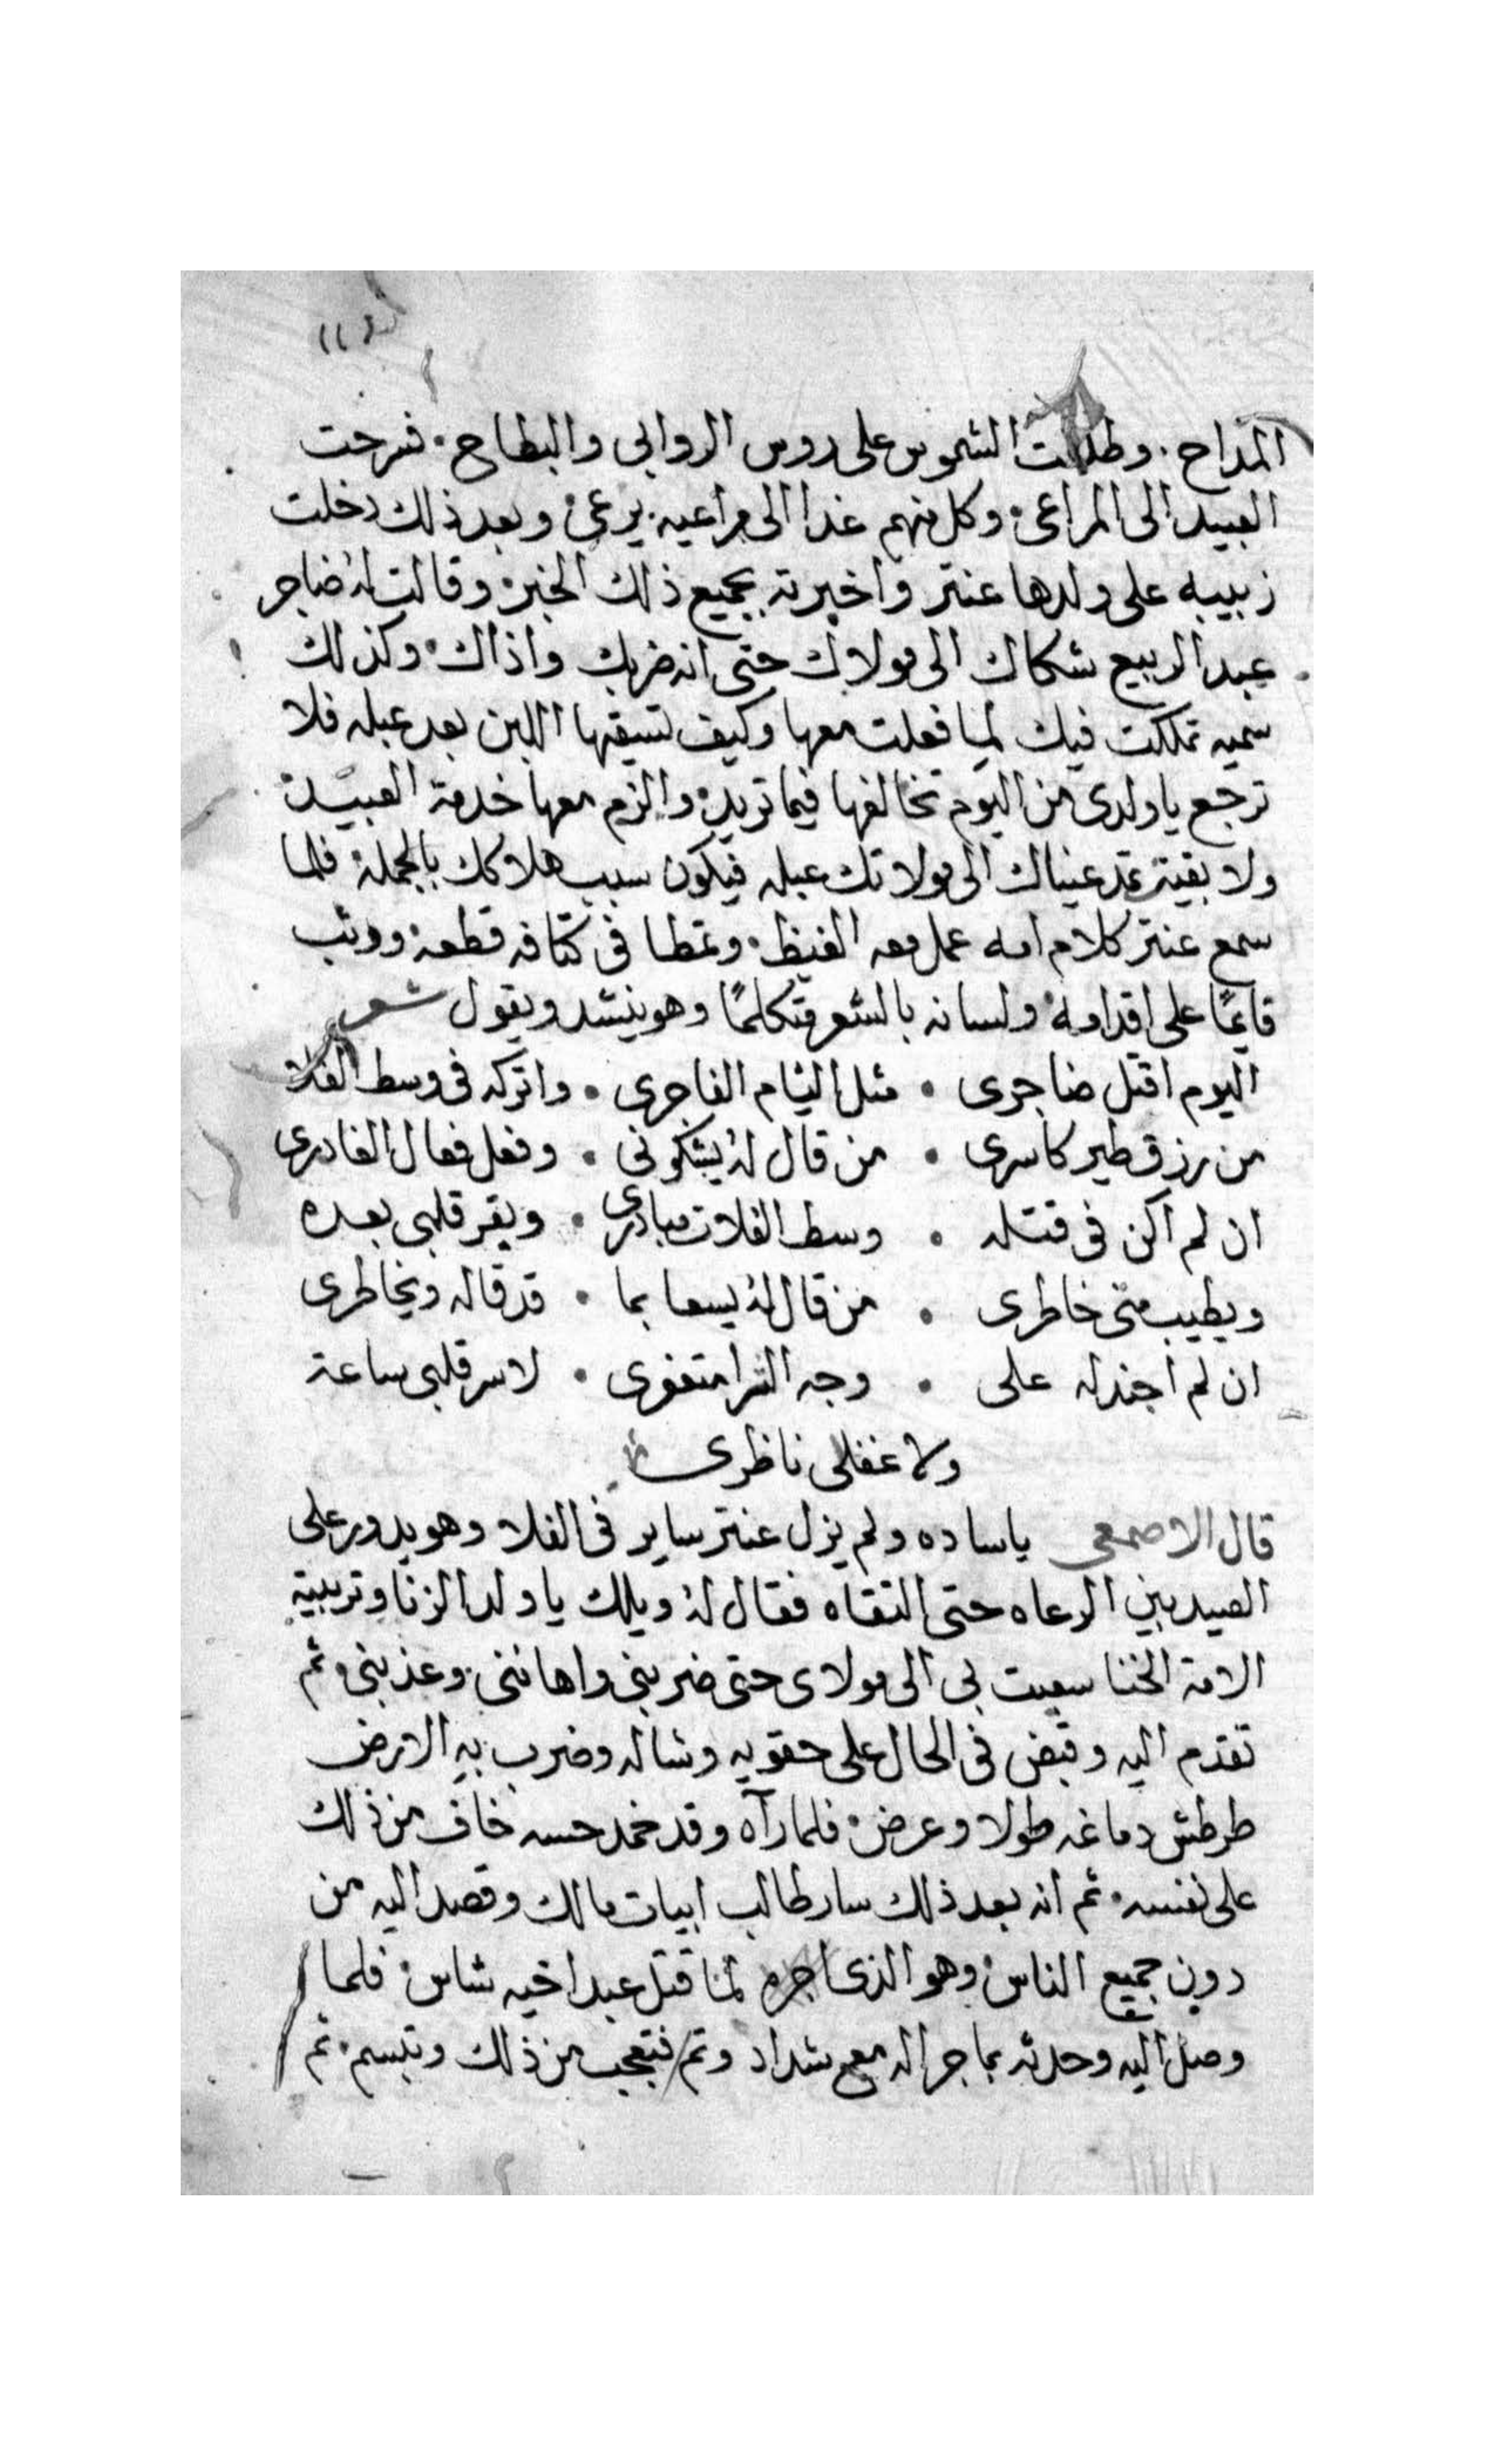 المداح. وطلعت الشموس على روس الروابى والبطاح. فسرحت
العبيد الى المراعى. وكل منهم غدا الى مراعيه يرعى. وبعد ذلك دخلت
زبيبه على ولدها عنتر واخبرته بجميع ذلك الخبر. وقالت له ضاجر
عبد الربيع شكاك الى مولاك حتى انه ضربك واذاك. وكذلك
سميه تملكت فيك لما فعلت معها وكيف تسيقها اللبن بعد عبله فلا
ترجع ياولدى من اليوم تخالفها فيما تريد. والزم معها خدمة العبيد.
ولا بقيت تمد عيناك الى مولاتك عبله فيكون سبب هلاكك بالجملة. فلما
سمع عنتر كلام امه عمل معه الغيظ. وتمطا فى كتافه قطعه. ووثب
قايمًا على اقدامه. ولسانه بالشعر متكلمًا وهو ينشد ويقول شعر
اليوم اقتل ضاجرى . مثل اليام الفاجرى . واتركه فى وسط الفلا
من رزق طير كاسرى . من قال له يشكونى . وفعل فعال الغادرى
ان لم اكن فى قتله . وسط الفلات مبادرى . ويقر قلبى بعده
ويطيب منى خاطرى . من قال له يسعا بما . قد قاله ويخاطرى
ان لم اجندله على . وجه الثرا متعفرى . لاسر قلبى ساعة
ولا غفلى ناظرى
قال الاصمعى ياساده ولم يزل عنتر ساير فى الفلا وهو يدور على
العبيد بين الرعاه حتى التقاه فقال له ويلك يا ولد الزنا وتربية
الامة الخنا سعيت بى الى مولاى حتى ضربنى واهاننى. وعذبنى. ثم
تقدم اليه وقبض فى الحال على حقويه وشاله وضرب به الارض
طرطش دماغه طولا وعرض. فلما رآه وقد خمد حسه خاف من ذلك
على نفسه. ثم انه بعد ذلك سار طالب ابيات مالك وقصد اليه من
دون جميع الناس. وهو الذى اجره لما قتل عبد اخيه شاس. فلما
وصل اليه وحدثه بما جرا له مع شداد وتم فتعجب من ذلك وتبسم. ثم